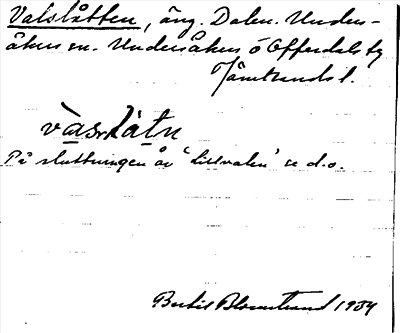 Valslåtten, äng. Dalen. Unders-
åkers sn. Undersåkers o Offerdals tg
Jämtlands l.
På sluttningen av 'Lillvalen' se d.o.
Bertil Blomstrand 1934